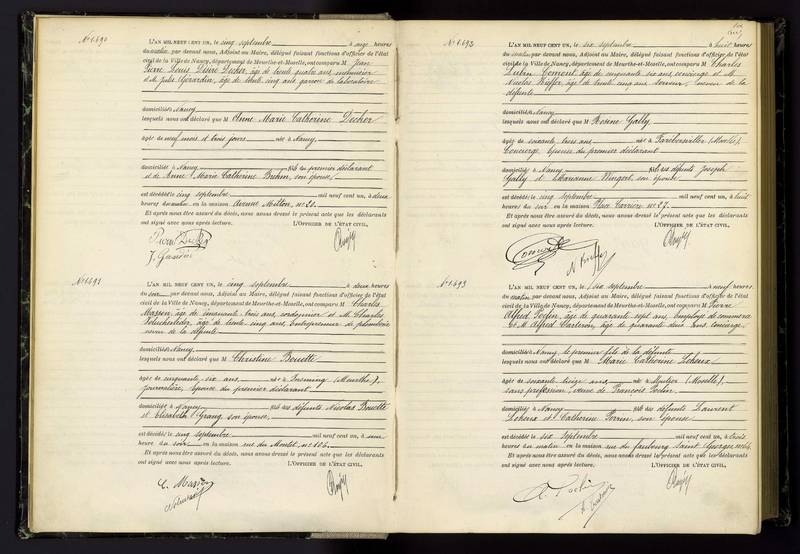 N° 1.490
L'AN MIL NEUF CENT UN, le cinq septembre à onze heures
du matin par devant nous, Adjoint au Maire, délégué faisant fonctions d'officier de l'état
civil de la Ville de Nancy, département de Meurthe-et-Moselle, ont comparu M Jean
Pierre Louis Désiré Decker, âgé de trente quatre ans
et M. Jules Gérardin, âgé de trente cinq ans garçon de laboratoire
domiciliés à Nancy
lesquels nous ont déclaré que M Anne Marie Catherine Decker
âgée de neuf mois et trois jours née à Nancy
domiciliée à Nancy fille du premier déclarant
et de Anne Marie Catherine Brehm, son épouse
est décédée le cinq septembre mil neuf cent un, à deux
heures du matin en la maison Avenue Millon, n° 20.
Et après nous être assuré du décès, nous avons dressé le présent acte que les déclarants
ont signé avec nous après lecture. L'OFFICIER DE L'ÉTAT CIVIL,
J. Gérardin
N° 1.491
L'AN MIL NEUF CENT UN, le cinq septembre à deux heures
du soir par devant nous, Adjoint au Maire, délégué faisant fonctions d'officier de l'état
civil de la Ville de Nancy, département de Meurthe-et-Moselle, ont comparu M Charles
Masson, âgé de cinquante trois ans, cordonnier et M. Charles
âgé de trente cinq ans, Entrepreneur de plomberie
neveu de la défunte
domiciliés à Nancy
lesquels nous ont déclaré que M Christine Bouette
âgée de cinquante six ans née à Insming (Meurthe),
journalière, épouse du premier déclarant
domiciliée à Nancy fille des défunts Nicolas Bouette
et Elisabeth Grang, son épouse
est décédée le cinq septembre mil neuf cent un, à une
heure du soir en la maison rue du Montet, n° 106.
Et après nous être assuré du décès, nous avons dressé le présent acte que les déclarants
ont signé avec nous après lecture. L'OFFICIER DE L'ÉTAT CIVIL,
C. Masson
N° 1.492
L'AN MIL NEUF CENT UN, le six septembre à huit heures
du matin par devant nous, Adjoint au Maire, délégué faisant fonctions d'officier de l'état
civil de la Ville de Nancy, département de Meurthe-et-Moselle, ont comparu M Charles
Lubin Comont, âgé de cinquante six ans, concierge et M.
Nicolas Kieffer, âgé de trente cinq ans, cousin de la
défunte
domiciliés à Nancy
lesquels nous ont déclaré que M Rosine Gally
âgée de soixante trois ans née à Farébersviller (Moselle)
Concierge, épouse du premier déclarant
domiciliée à Nancy fille des défunts Joseph
Gally et Marianne Wingert, son épouse
est décédée le cinq septembre mil neuf cent un, à huit
heures du soir en la maison Place Carrière n° 27.
Et après nous être assuré du décès, nous avons dressé le présent acte que les déclarants
ont signé avec nous après lecture. L'OFFICIER DE L'ÉTAT CIVIL,
Comont
N. Kieffer
N° 1.493
L'AN MIL NEUF CENT UN, le six septembre à neuf heures
du matin par devant nous, Adjoint au Maire, délégué faisant fonctions d'officier de l'état
civil de la Ville de Nancy, département de Meurthe-et-Moselle, ont comparu M Pierre
Alfred Poclin, âgé de quarante sept ans, Employé de commerce
et M. Alfred Carteron, âgé de quarante deux ans concierge
domiciliés à Nancy, le premier fils de la défunte
lesquels nous ont déclaré que M Marie Catherine Loheux
âgée de soixante treize ans née à Moutier (Moselle),
sans profession, veuve de François Poclin
domiciliée à Nancy fille des défunts Laurent
Loheux et Catherine Perrin, son épouse
est décédée le six septembre mil neuf cent un, à trois
heures du matin en la maison rue du faubourg Saint Georges, n° 64
Et après nous être assuré du décès, nous avons dressé le présent acte que les déclarants
ont signé avec nous après lecture. L'OFFICIER DE L'ÉTAT CIVIL,
A. Poclin